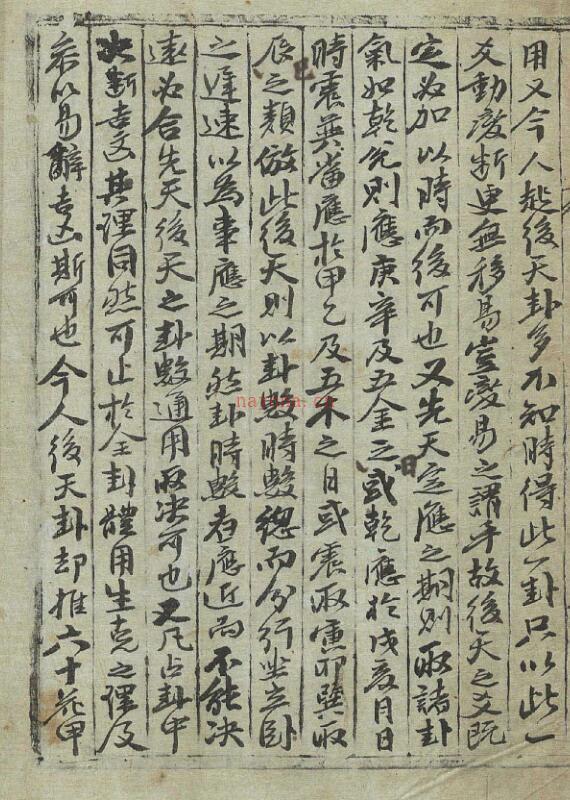 用又今人起後天卦多不知時得此一卦只以此一
爻動愛断更無移易豈愛易之謂乎故後天之爻既
定必加以時而後可也又先天定應之期則取諸卦
氣如乾兌則應庚辛及五金之日或乾應於戌亥月日
時震巽當應於甲乙及五木之日或震取寅卯巽取
辰巳之類倣此後天則以卦數時數總而分行坐立卧
之遲速以為事應之期然卦時數者應近而不能决
遠必合先天後天之卦數通用取决可也又凡占卦中
决断吉凶其理同然可止於全卦體用生克之理及
參以易辭吉凶斯可也今人後天卦却推六十花甲
natuna.cn